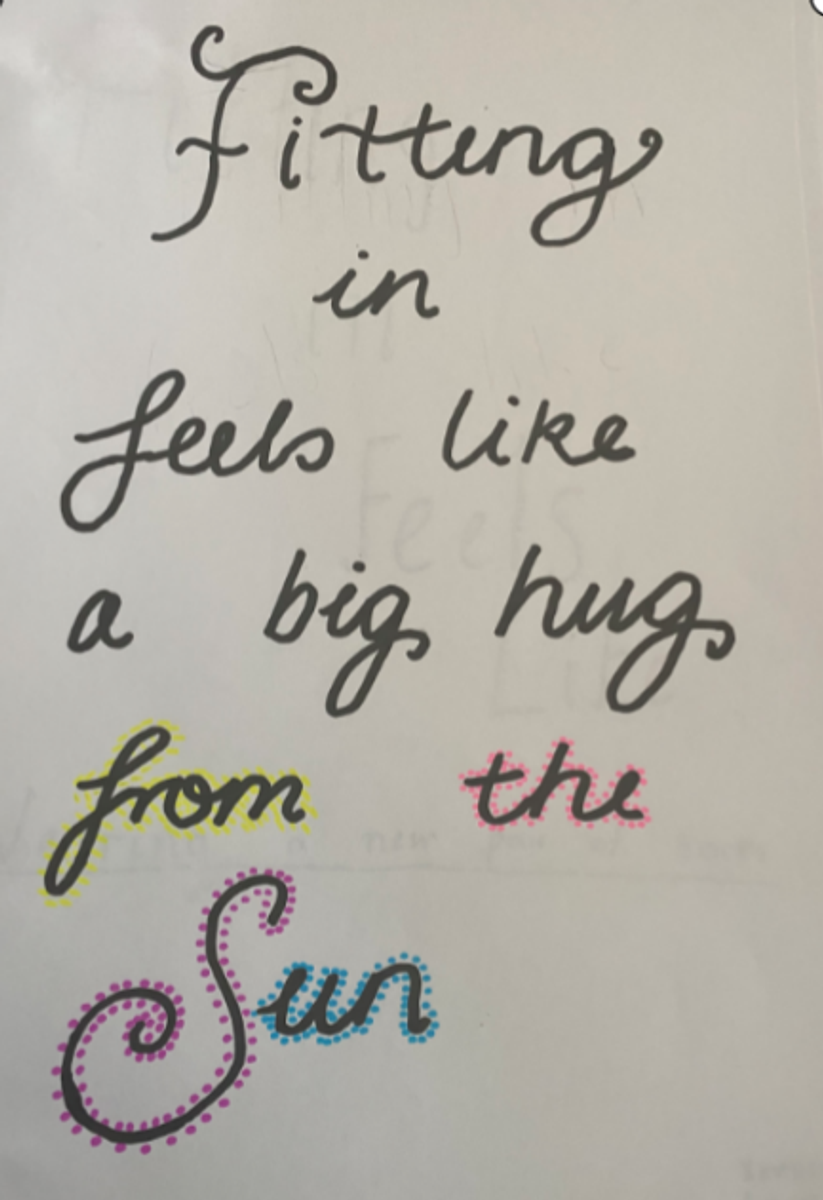 Fitting
in
feels like
a big hug
from the
Sun